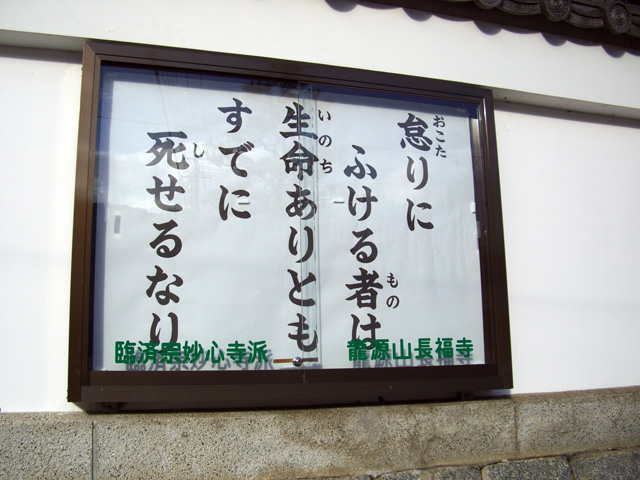 怠りに
ふける者は
生命ありとも
すでに
死せるなり
おこた
もの
いのち
し
龍源山長福寺
臨済宗妙心寺派